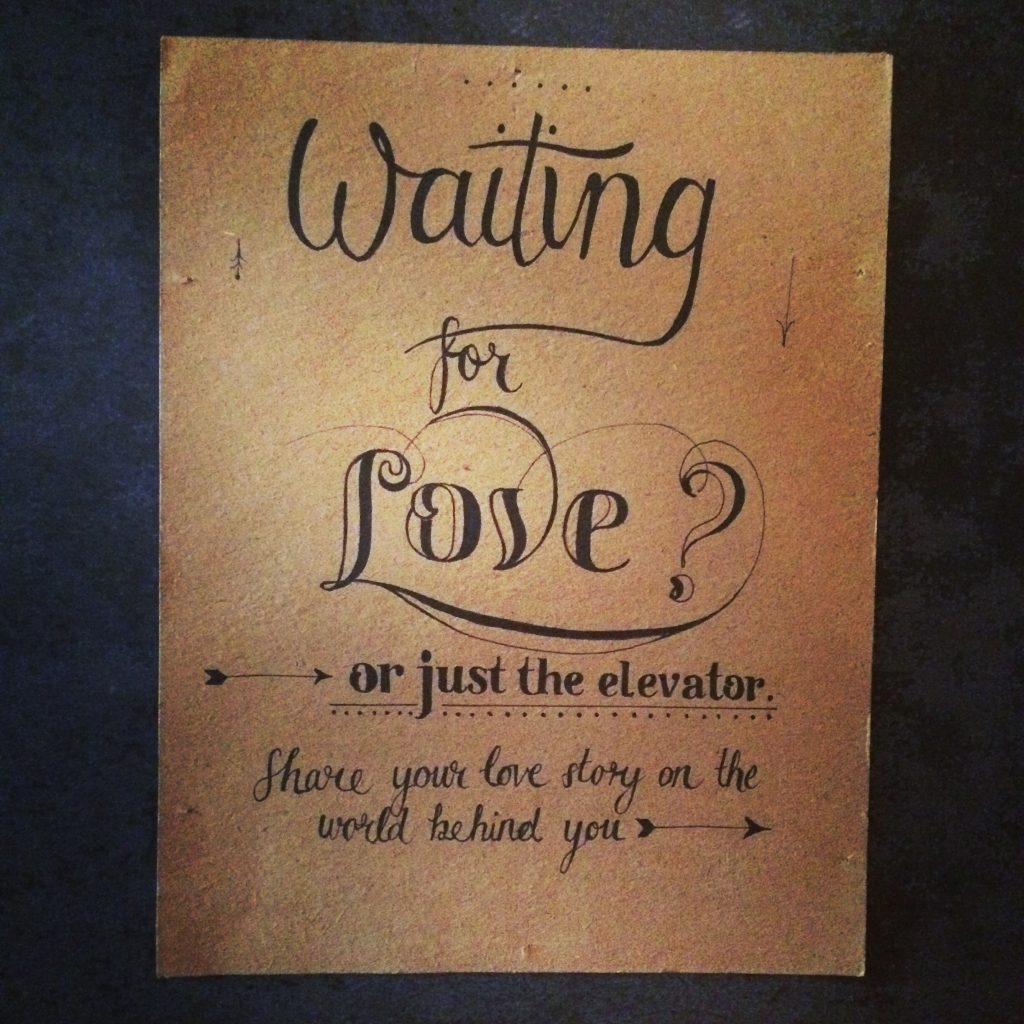 Waiting
for
Love?
or just the elevator.
Share your love story on the
world behind you